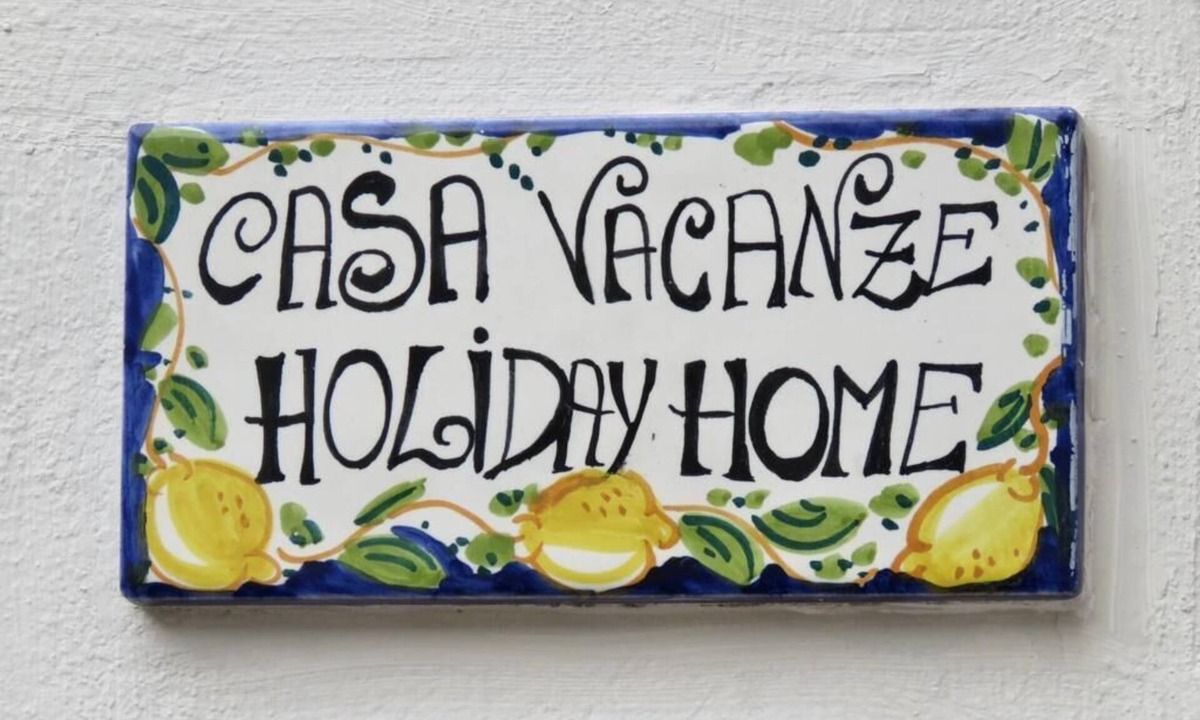 CASA VACANZE
HOLIDAY HOME